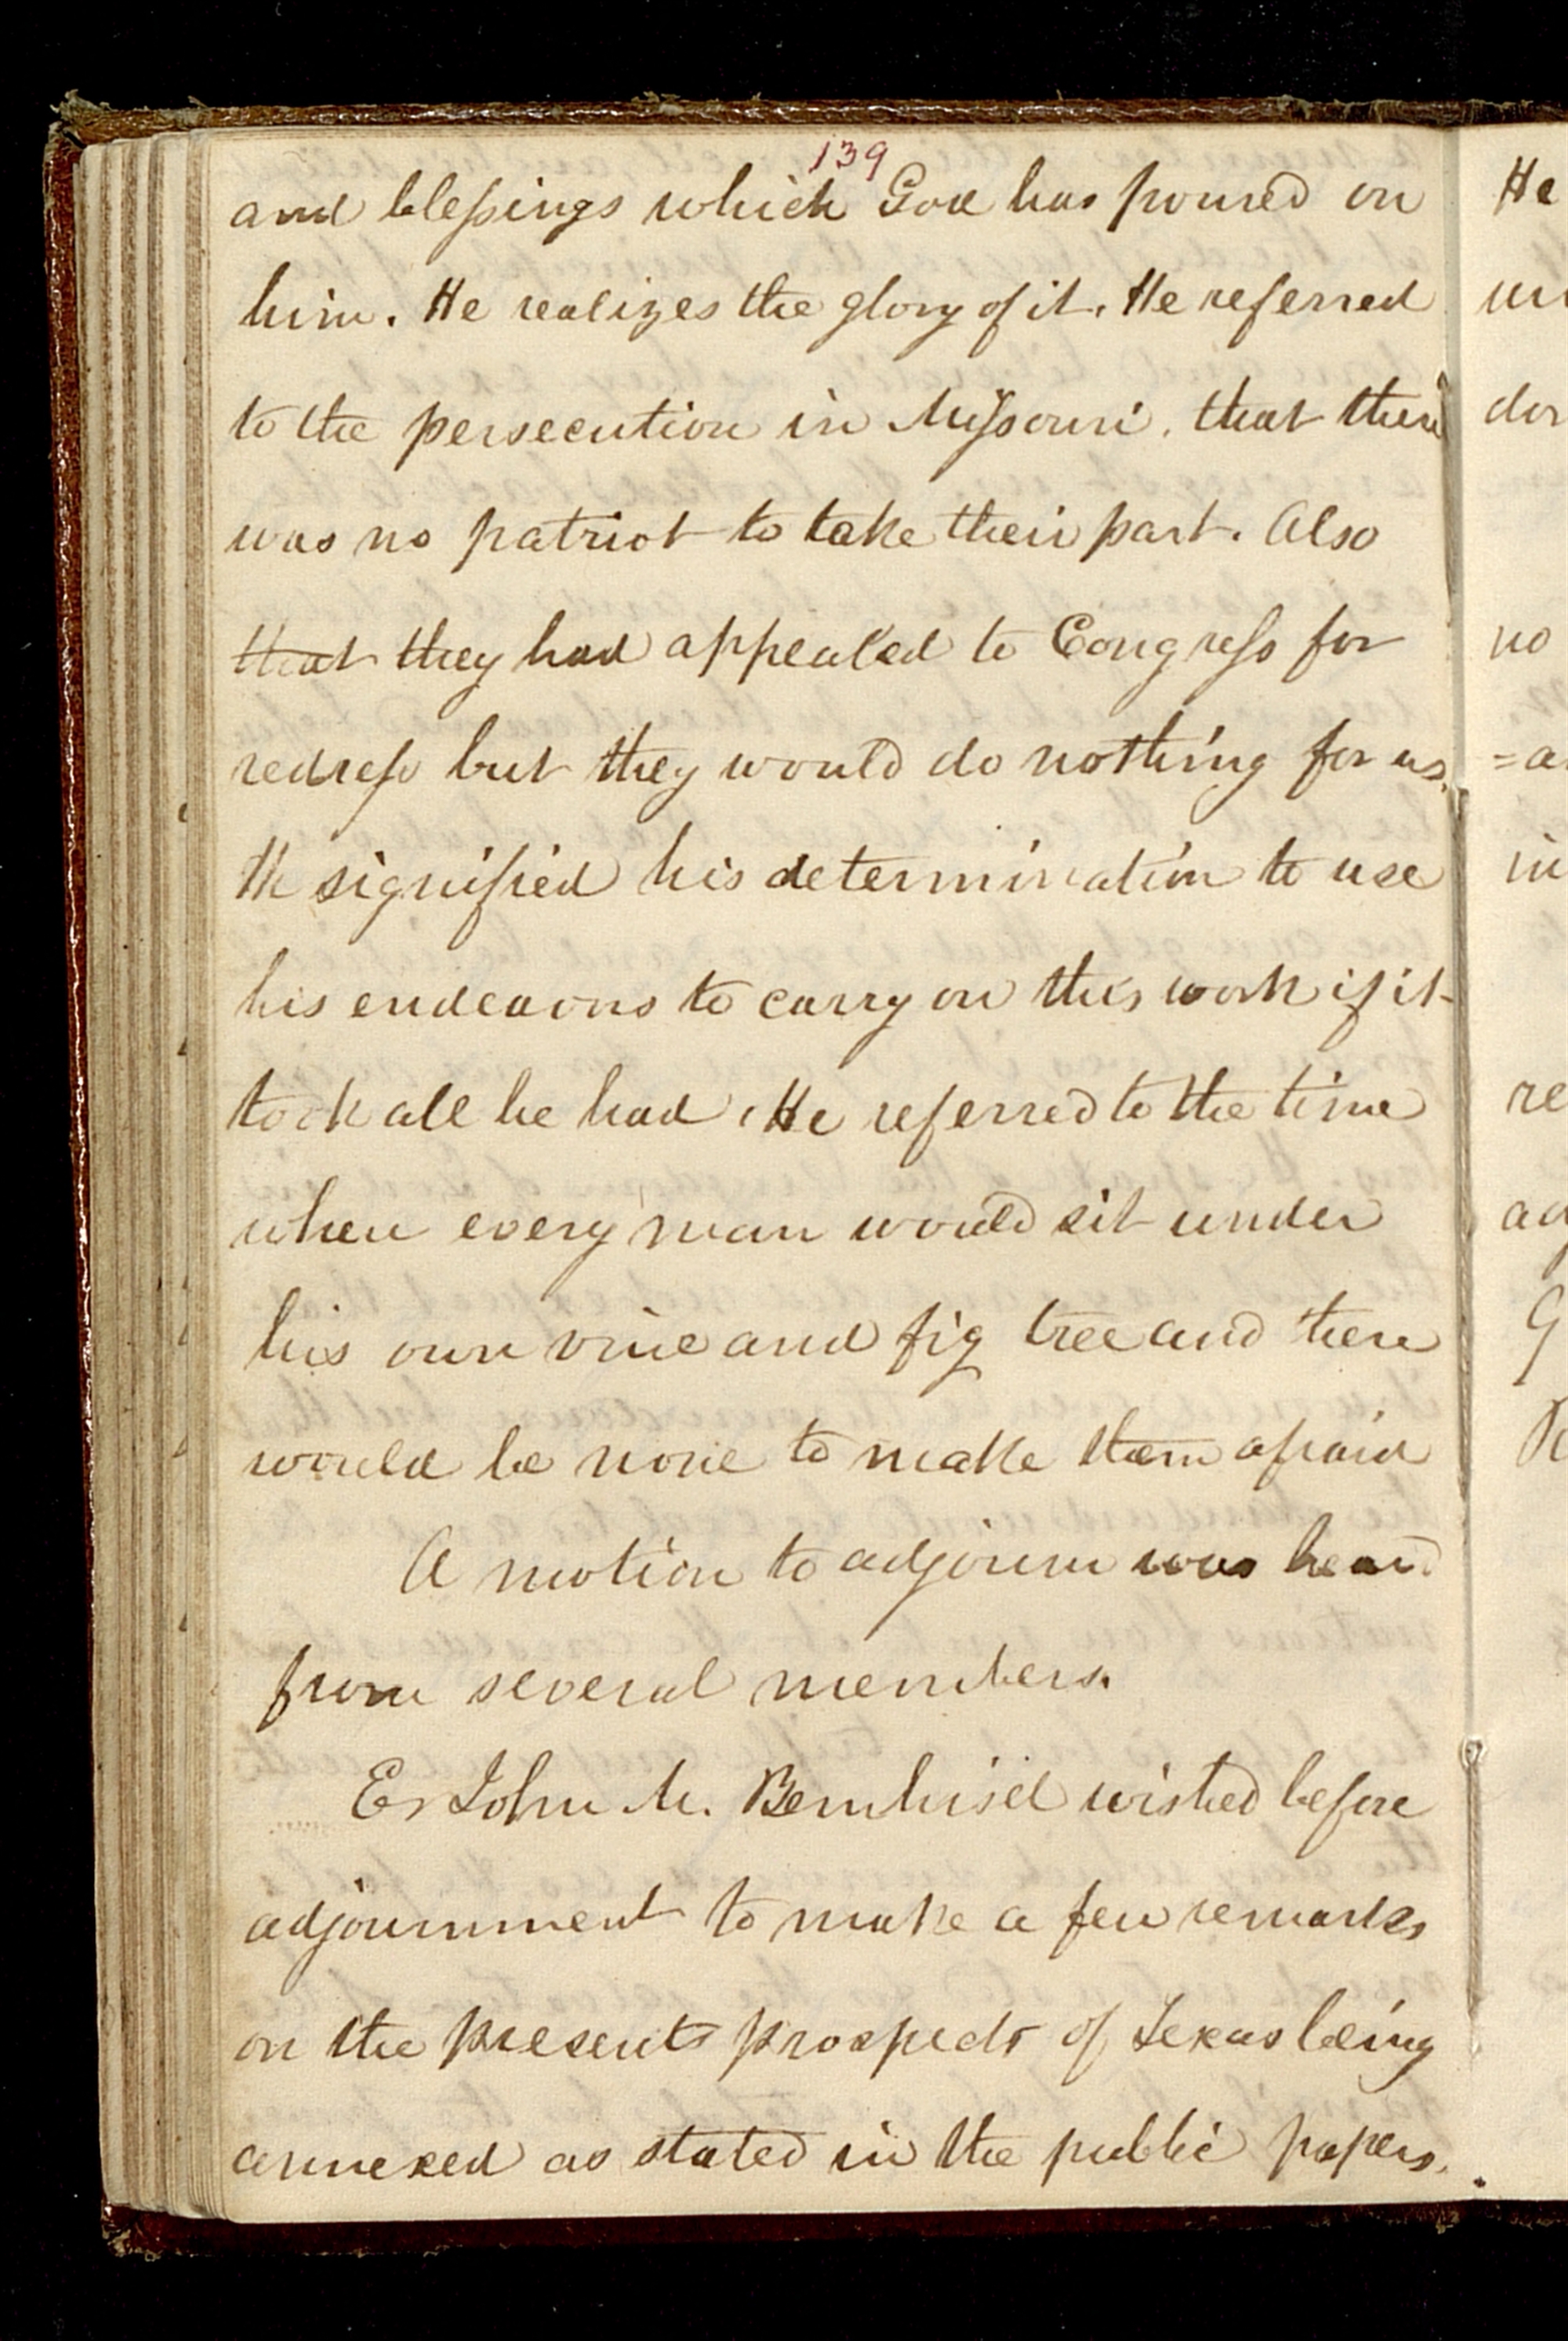 139
and blessings which God has poured on
him. He realizes the glory of it. He referred
to the persecution in Missouri, that there
was no patriot to take their part. Also
that they had appealed to Congress for
redress but they would do nothing for us.
He signified his determination to use
his endeavors to carry on this work if it
took all he had. He referred to the time
when every man would sit under
his own vine and fig tree and there
would be none to make them afraid
A motion to adjourn was heard
from several members.
Er John M. Bernhisel wished before
adjournment to make a few remarks
on the present prospects of Texas being
annexed as stated in the public papers.
He
no
=a
in
re